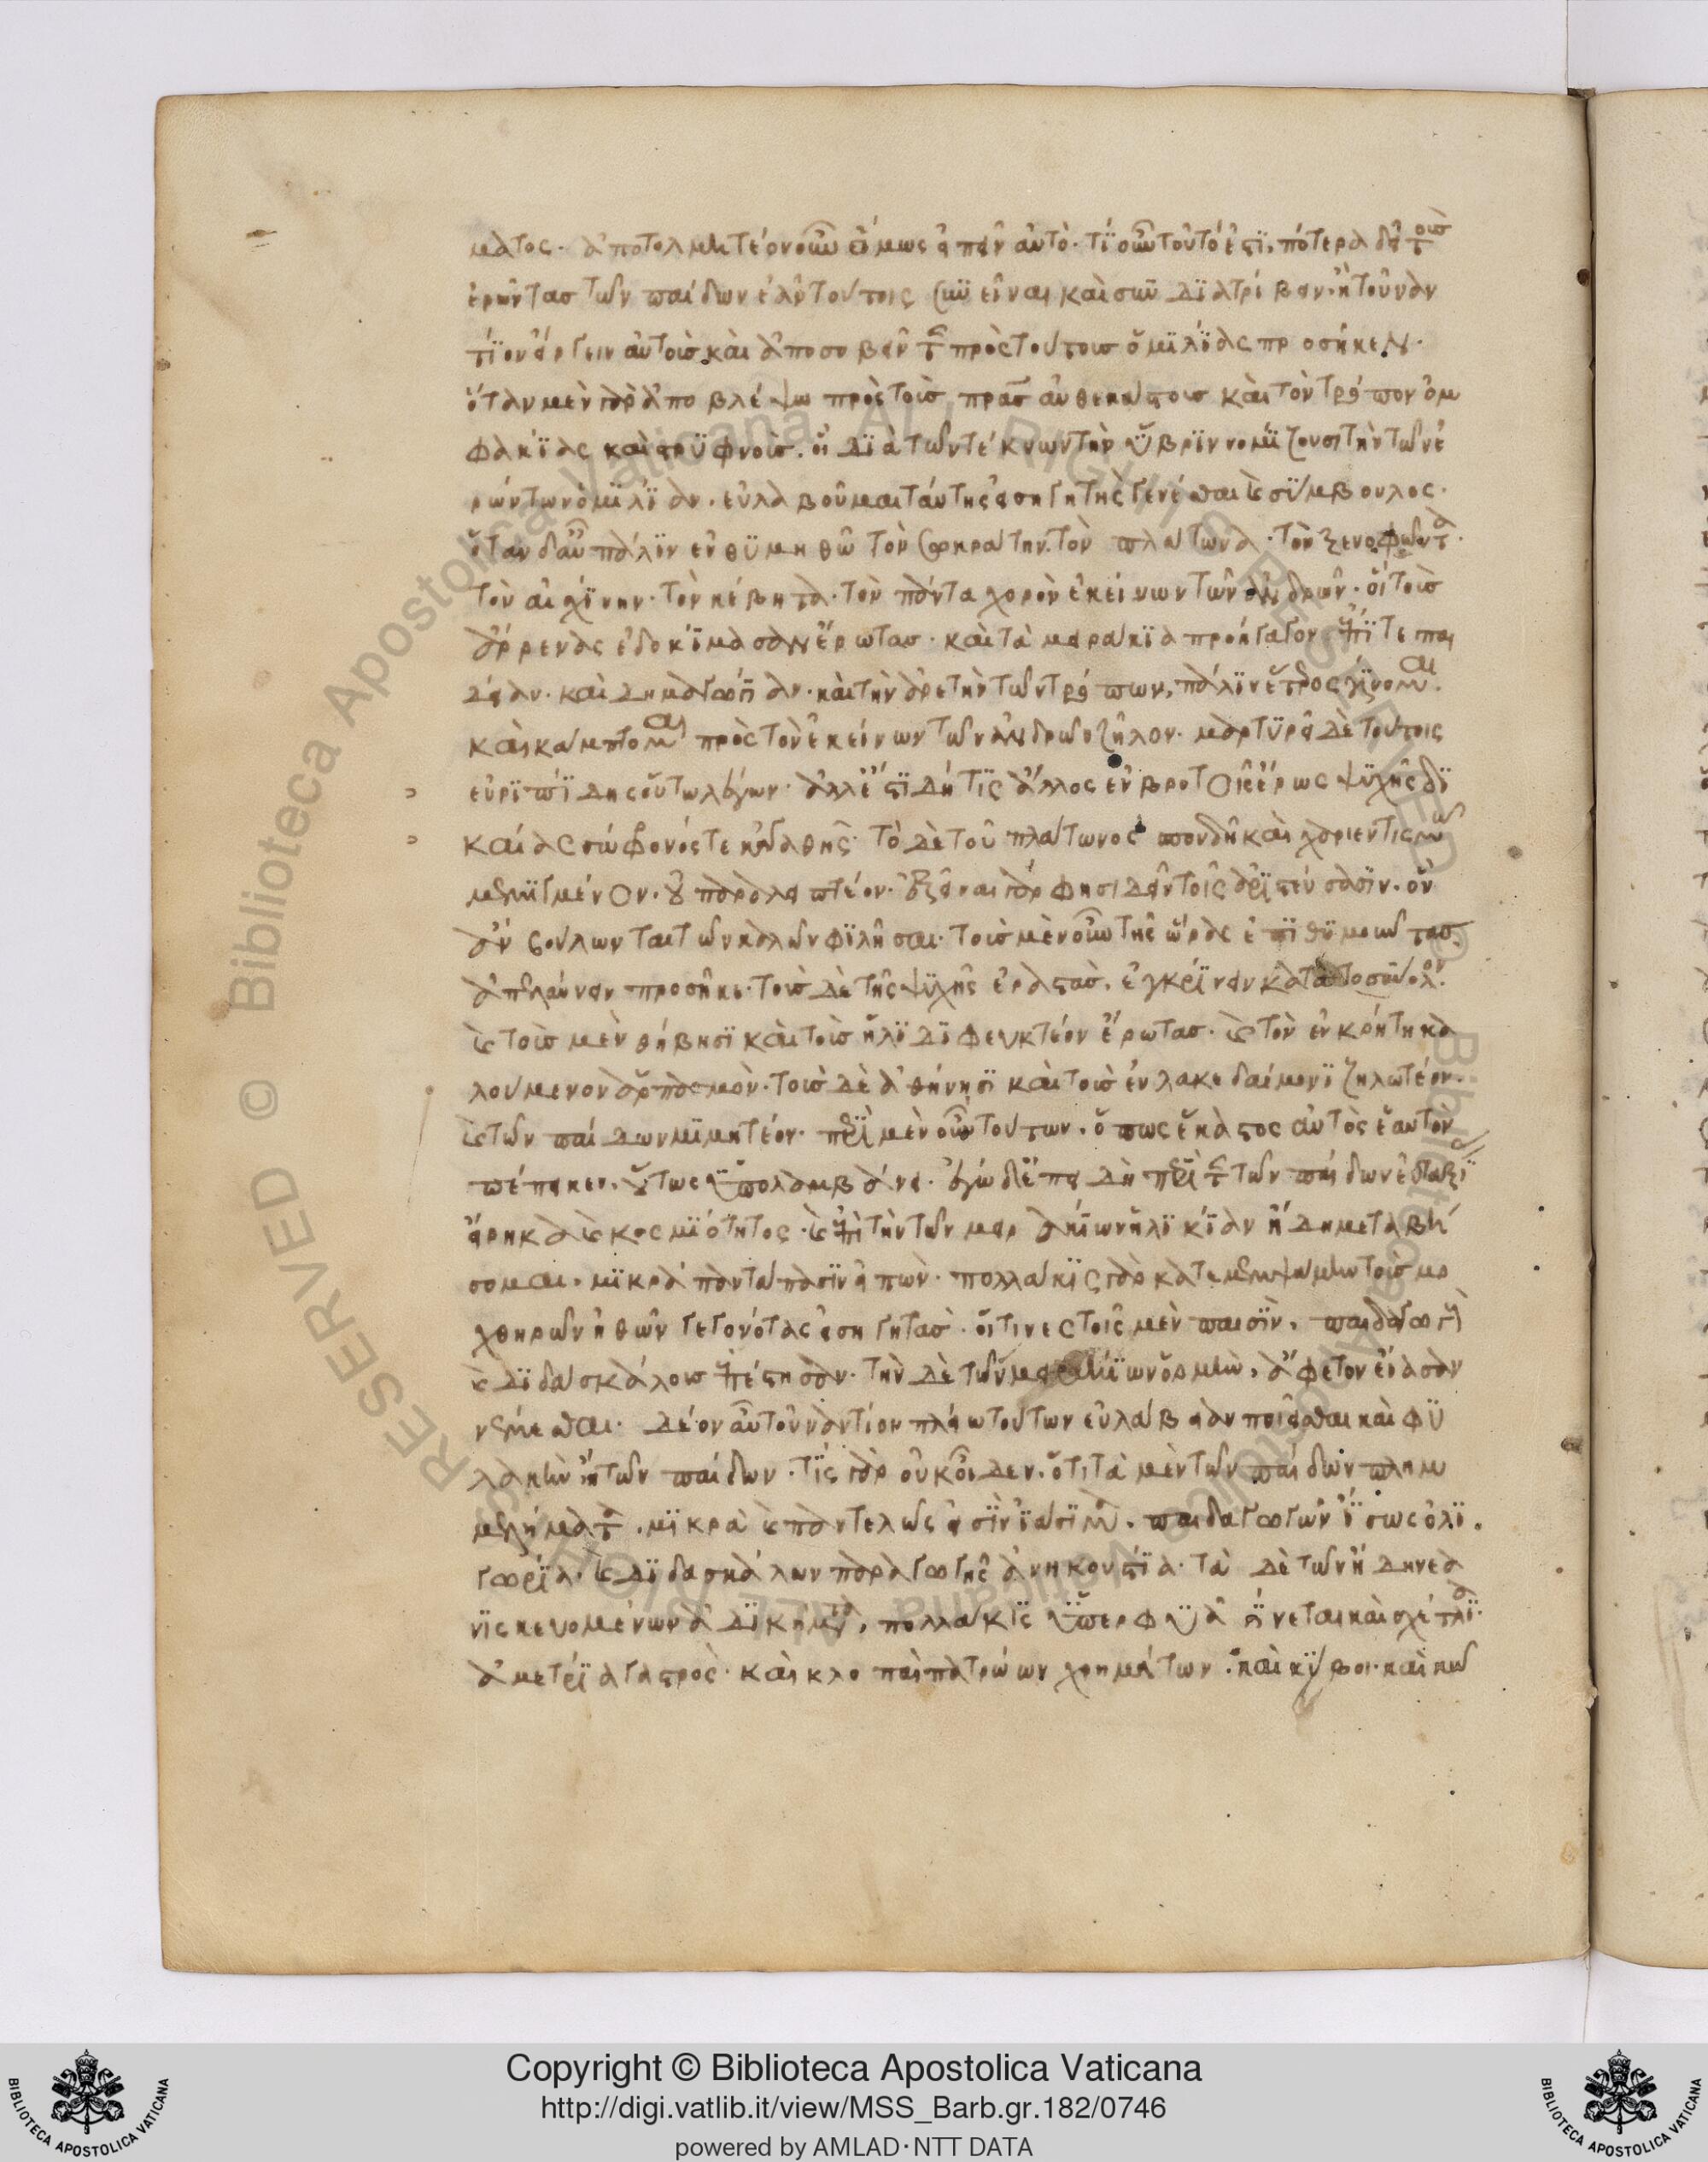 ματος· ἀποτολμητέον οὖν ὅμως εἰπεῖν αὐτό· τί οὖν τοῦτό ἐστι, πότερα δεῖ τοὺς
ἐρῶντας τῶν παίδων ἐᾶν τούτοις συνεῖναι καὶ συνδιατρίβειν· ἢ τοὐναν
τίον εἴργειν αὐτοὺς καὶ ἀποσοβεῖν τῆς πρὸς τούτους ὁμιλίας προσῆκεν·
ὅταν μὲν γὰρ ἀποβλέψω πρὸς τοὺς πρας αὐθεκάστους καὶ τὸν τρόπον ὀμ
φακίας καὶ στρυφνοὺς. οἳ διὰ τῶν τέκνων τὴν ὕβριν νομίζουσι τὴν τῶν ἐ
ρώντων ὁμιλίαν. εὐλαβοῦμαι ταύτης εἰσηγητὴς γενέσθαι καὶ σύμβουλος.
ὅταν δ' αὖ πάλιν ἐνθυμηθῶ τὸν σωκράτην. τὸν πλάτωνα· τὸν ξενοφῶντα.
τὸν αἰσχίνην· τὸν κέβητα· τὸν πάντα χορὸν ἐκείνων τῶν ἀνδρῶν· οἳ τοὺς
ἄρρενας ἐδοκίμασαν ἔρωτας· καὶ τὰ μειράκια προήγαγον ἐπί τε παι
δείαν. καὶ δημαγωγίαν· καὶ τὴν ἀρετὴν τῶν τρόπων, πάλιν ἕτερος γίνομαι.
καὶ κάμπτομαι πρὸς τὸν ἐκείνων τῶν ἀνδρῶν ζῆλον· μαρτυρεῖ δὲ τούτοις
εὐριπίδης οὕτω λέγων· ἀλλ' ἔστι δή τις ἄλλος ἐν βροτοῖς ἔρως ψυχῆς δι
καίας σώφρονός τε κἀγαθῆς· τὸ δὲ τοῦ πλάτωνος σπουδῇ καὶ χαριεντισμῷ
μεμιγμένον. οὐ παραλειπτέον· ἐξεῖναι γάρ φησι δεῖν τοῖς ἀριστεύσασιν. ὃν
ἂν βούλωνται τῶν καλῶν φιλῆσαι· τοὺς μὲν οὖν τῆς ὥρας ἐπιθυμοῦντας.
ἀπελαύνειν προσῆκε· τοὺς δὲ τῆς ψυχῆς ἐραστὰς. ἐγκρίνειν κατὰ τὸ σύνολον.
καὶ τοὺς μὲν θήβησι καὶ τοὺς ἤλιδι φευκτέον ἔρωτας· καὶ τὸν ἐν κρήτῃ κα
λούμενον ἁρπασμόν· τοὺς δὲ ἀθήνησι καὶ τοὺς ἐν λακεδαίμονι ζηλωτέον·
καὶ τῶν παίδων μιμητέον· περὶ μὲν οὖν τούτων. ὅπως ἕκαστος αὐτὸς ἑαυτὸν
πέπεικεν. οὕτως ὑπολαμβάνει. ἐγὼ δ' ἐπεὶ δὴ περὶ τῆς τῶν παίδων εὐταξίας
εἴρηκα καὶ κοσμιότητος· καὶ ἐπὶ τὴν τῶν μειρακίων ἡλικίαν ἤδη μεταβή
σομαι. μικρὰ παντάπασιν εἰπών· πολλάκις γὰρ κατεμεμψάμην τοὺς μο
χθηρῶν ἠθῶν γεγονότας εἰσηγητάς· οἵτινες τοῖς μὲν παισὶν. παιδαγωγοὺς
καὶ διδασκάλους ἐπέστησαν. τὴν δὲ τῶν μειρακίων ὁρμὴν. ἄφετον εἴασαν
νέμεσθαι· δέον αὖ τοὐναντίον πλείω τούτων εὐλάβειαν ποιεῖσθαι καὶ φυ
λακὴν ἢ τῶν παίδων· τίς γὰρ οὐκ οἶδεν. ὅτι τὰ μὲν τῶν παίδων πλημ
μελήματα. μικρὰ καὶ παντελῶς εἰσὶν ἰάσιμα. παιδαγωγῶν ἴσως ὀλι
γωρία· καὶ διδασκάλων παραγωγῆς ἀνηκουστία· τὰ δὲ τῶν ἤδη νεα
νισκευομένων ἀδικήματα. πολλάκις ὑπερφυᾶ γίνεται καὶ σχέτλια·
ἀμετρία γαστρὸς· καὶ κλοπαὶ πατρῴων χρημάτων· καὶ κύβοι· καὶ κῶ
Copyright © Biblioteca Apostolica Vaticana
http://digi.vatlib.it/view/MSS_Barb.gr.182/0746
powered by AMLAD·NTT DATA